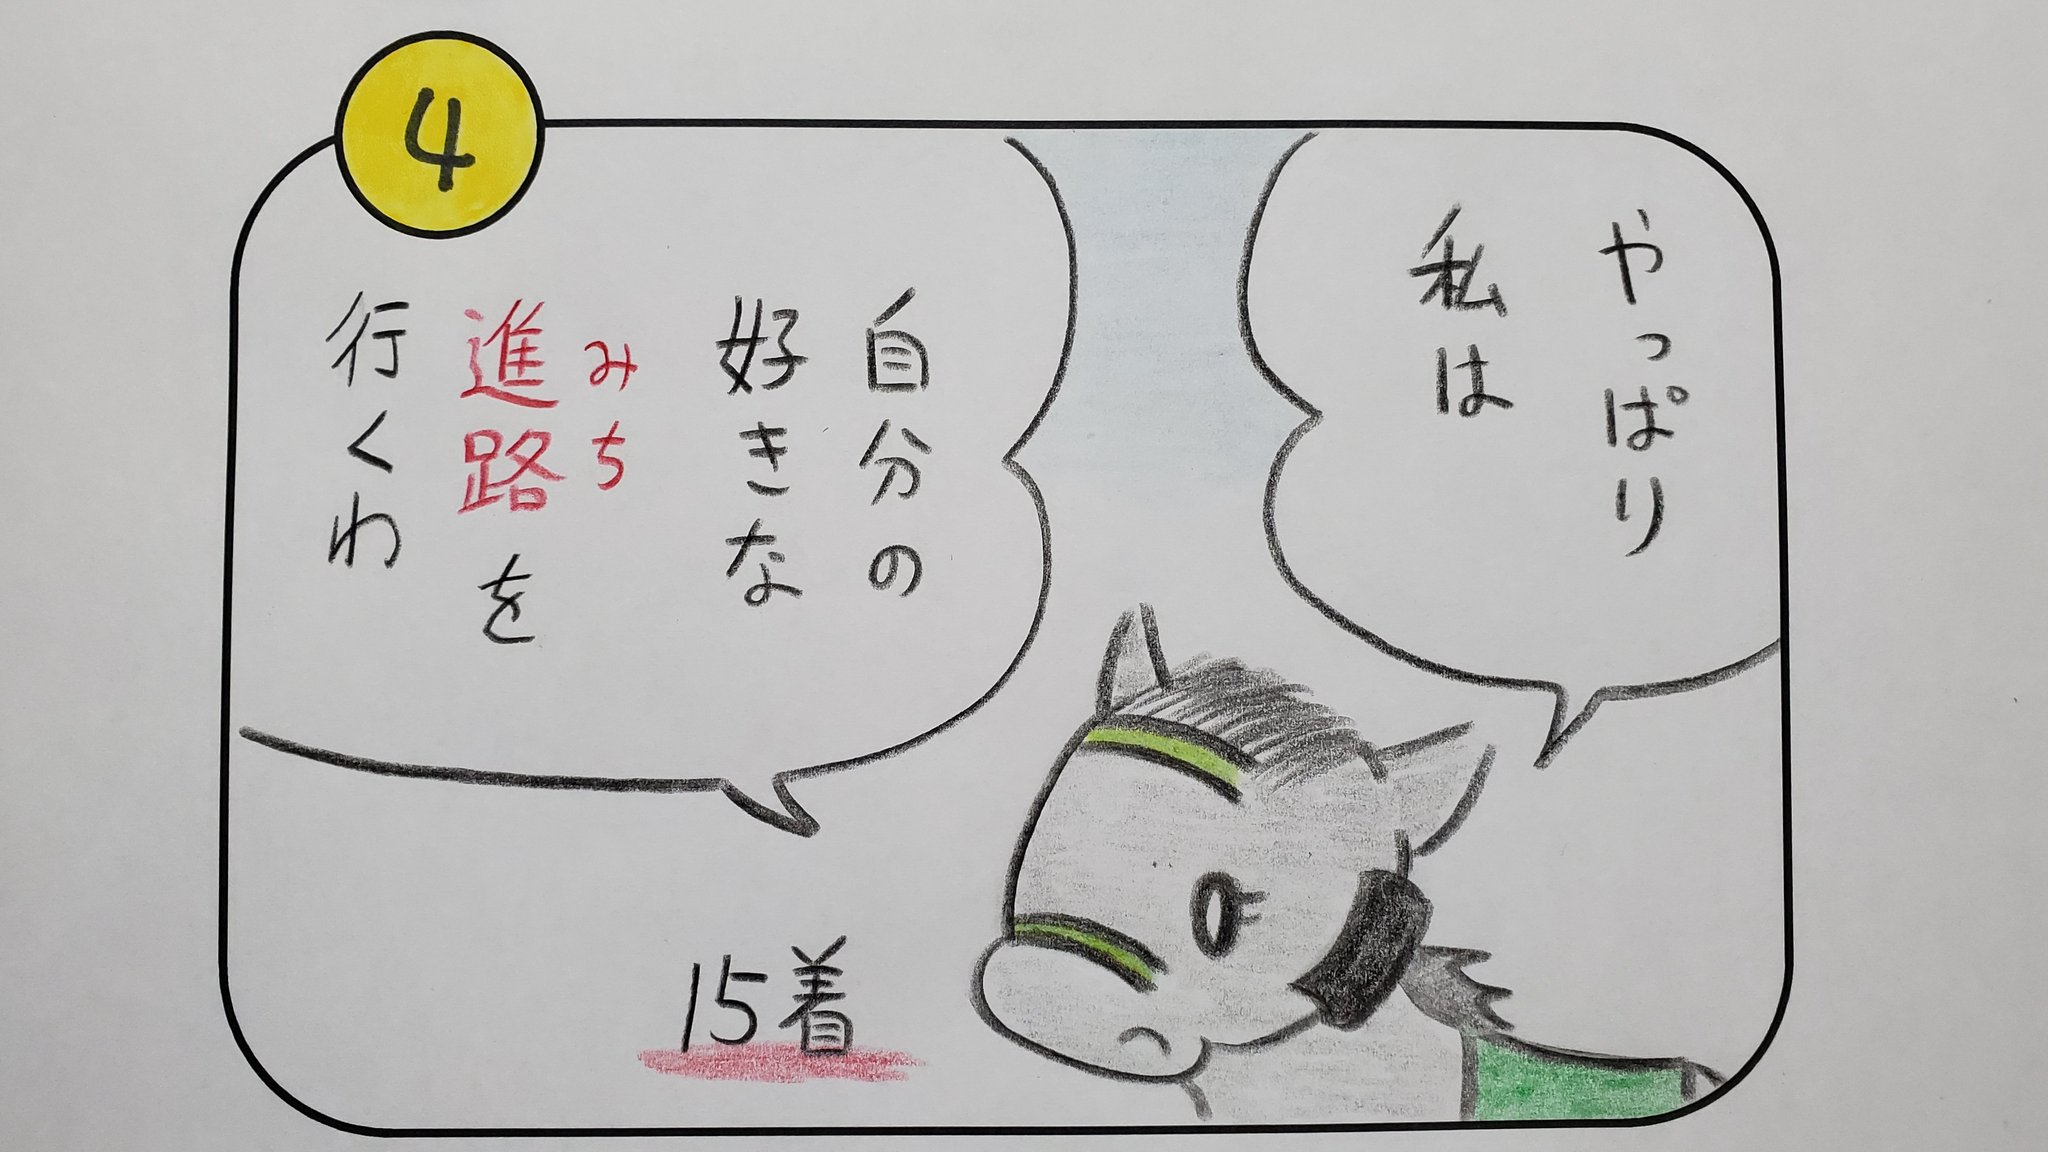 4
やっぱり
私は
自分の
好きな
みち
進路を
行くわ
15着